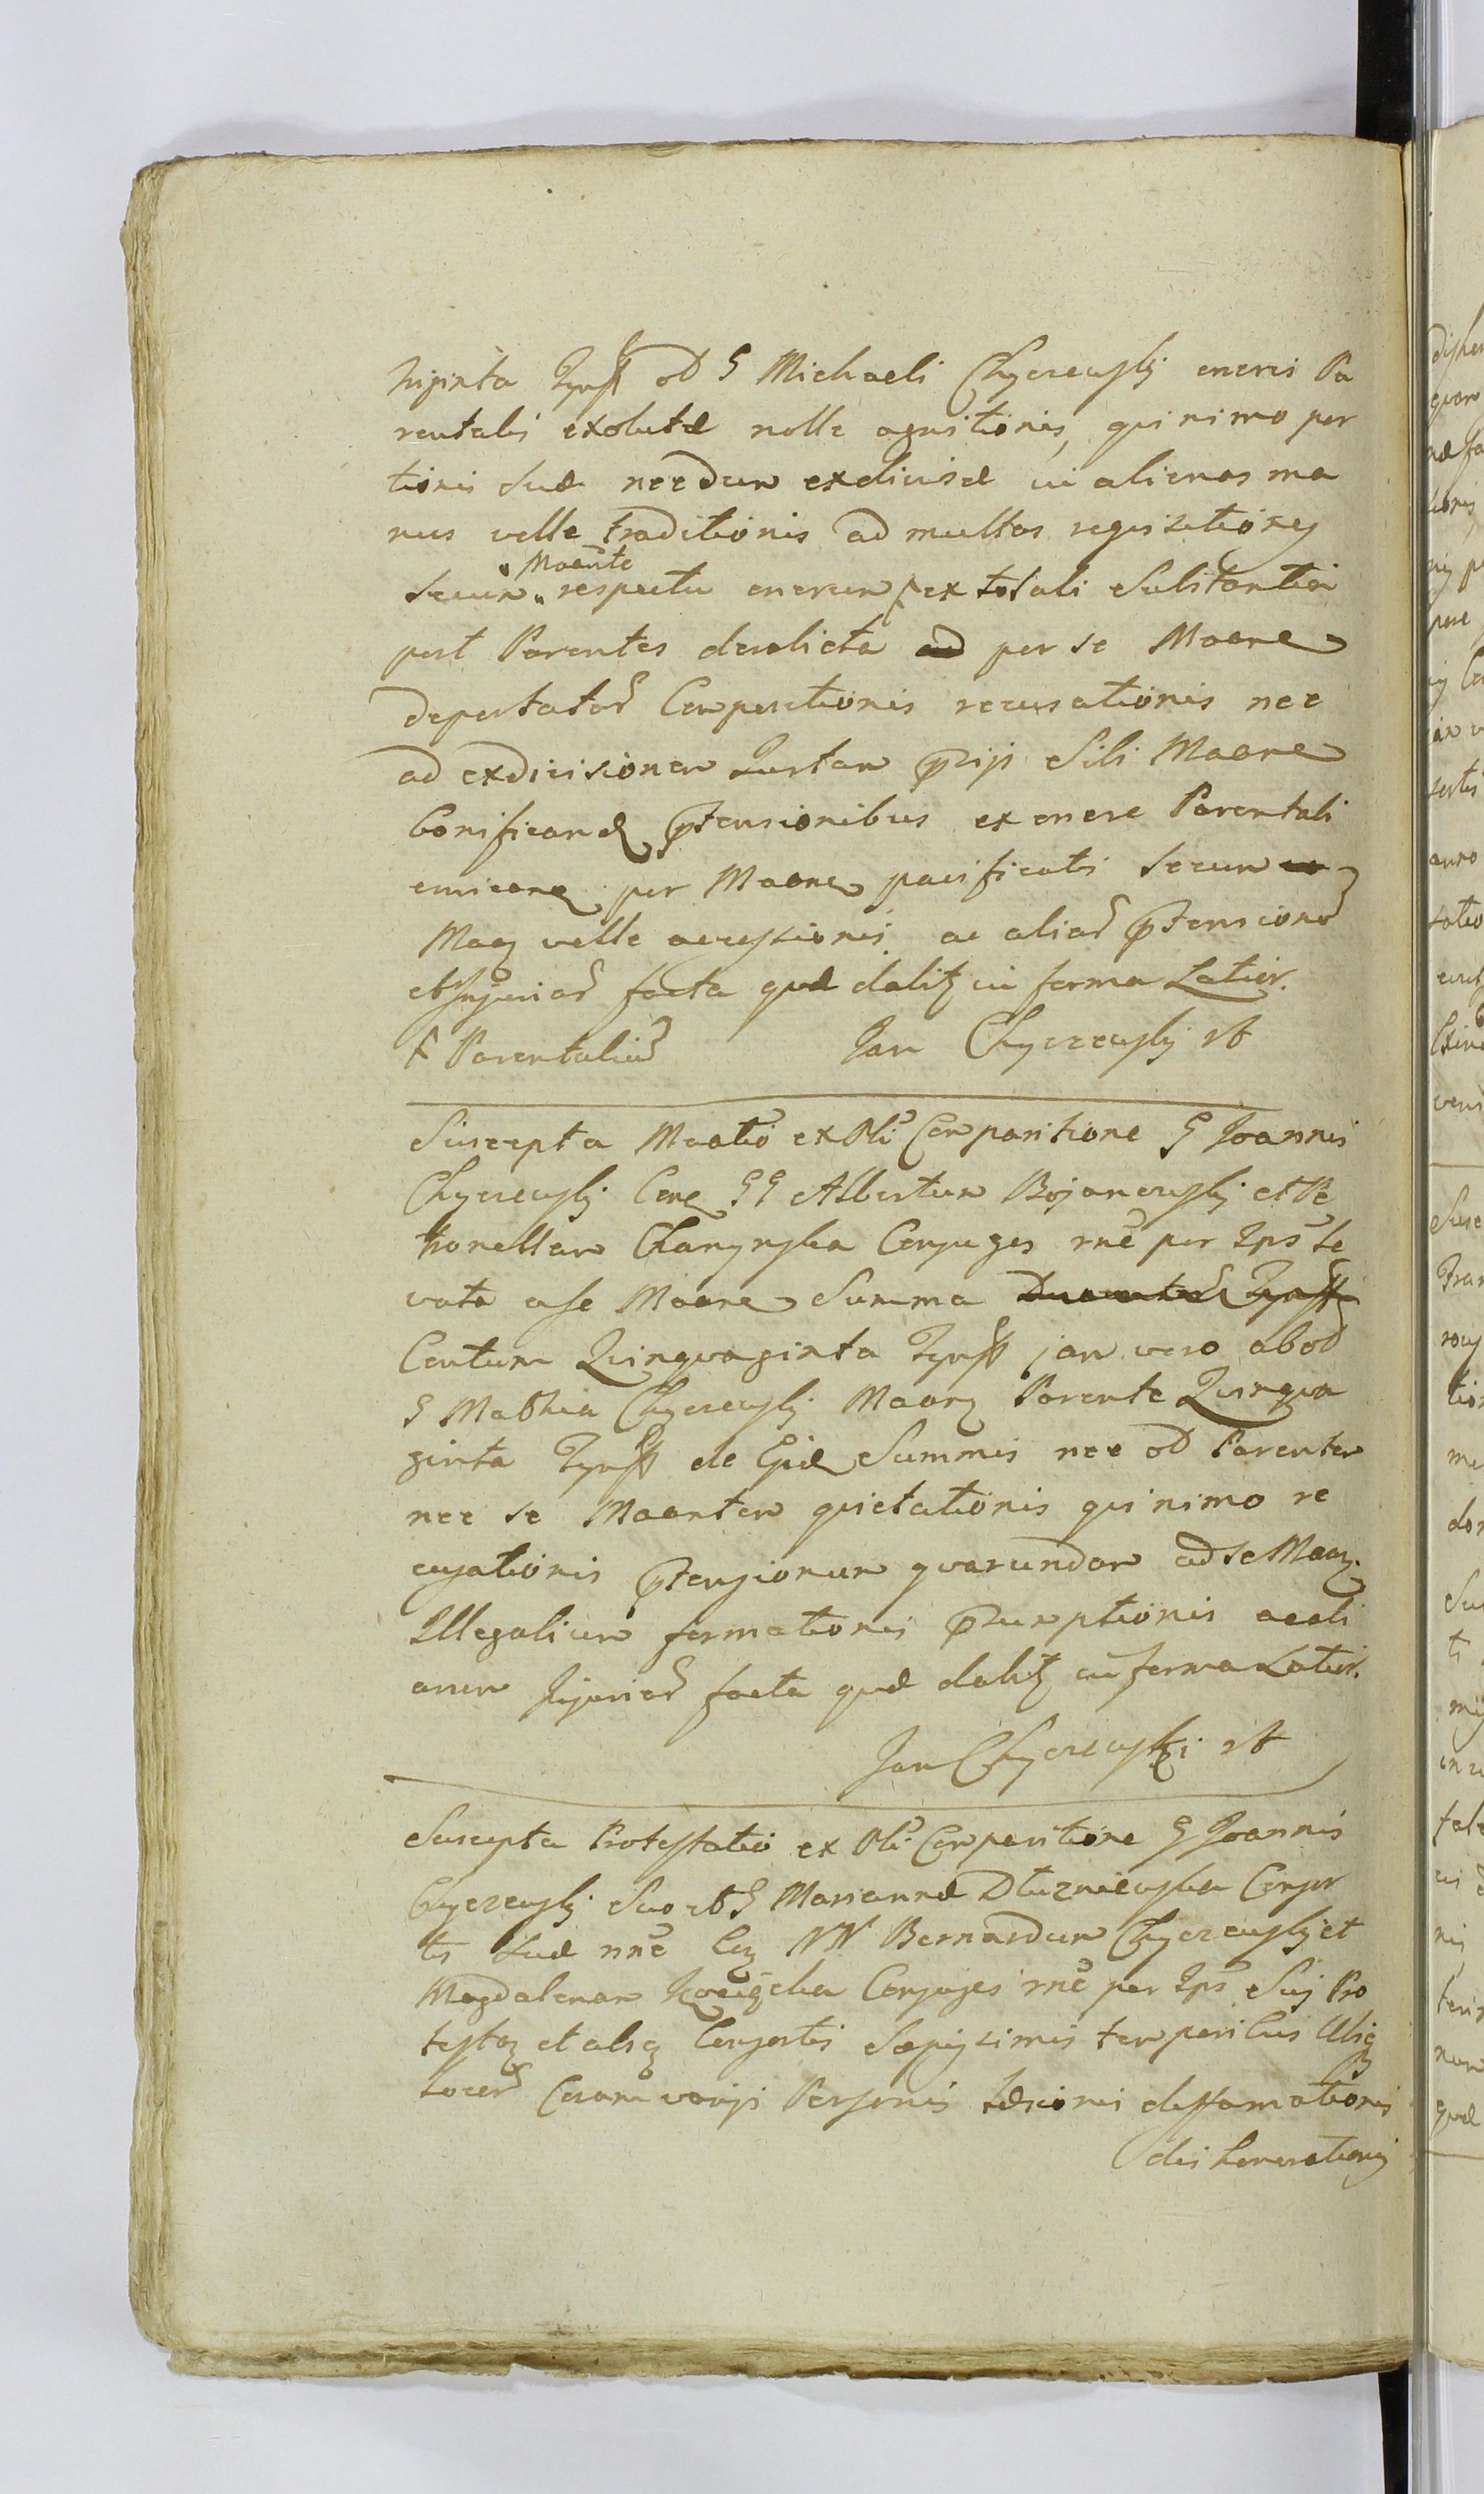 ginta Tynff ad G Michaeli Chyczewskj oneris Pa
rentalis exolutæ nolle agnitionis, quinimo por
tionis suæ necdum exdivisæ in alienas ma
nus velle traditionis ad multas requisitiones
Maante
secum respectu onerum ex totali Substantia
post Parentes derelicta ad per se Maane
deportator Comportationis recusationis nec
ad exdivisionem Justam sibi Maane
bonificand ptensionibus ex onere Parentali
per Maane pacificatis secum
Maaq velle accessionis ac aliar ptensionu
et Injuriar facta quæ dabitz in forma Latior.
Parentaliu Jan Chyczewskj
Suscepta Maatio ex Obli Comparitione G Joannis
Chyczewskj Cona GG Albertum Bojanowskj et Pe
tronellam Conjuges rne per Ips le
vata a se Maane Summa Ducentor Tynff
Centum Quinquaginta Tynff jam vero ab od
G Mathia Chyczewskj Maanz Parente Quinqua
ginta Tynff de Summis nec od Parentem
nec se Maantem quietationis quinimo re
cusationis ptensionum quarundam ad se Maaz
Illegalium formationis psumptionis ac ali
arum Injuriar facta quæ dabitz in forma Latior.
Jan Chyczewski
Suscepta Protestatio ex Obli Comparitione G Joannis
Chyczewskj Suo et G Mariannæ Dłuzniewska Consor
tis suæ nne Coq NN Bernardum Chyczewskj et
Magdalenam Conjuges rne per Ips Suj Pro
testaz et ejusq Consortis sæpissimis temporibus Ubiq
locor Coram varijs Personis læsionis deffamationis
dishonorationis